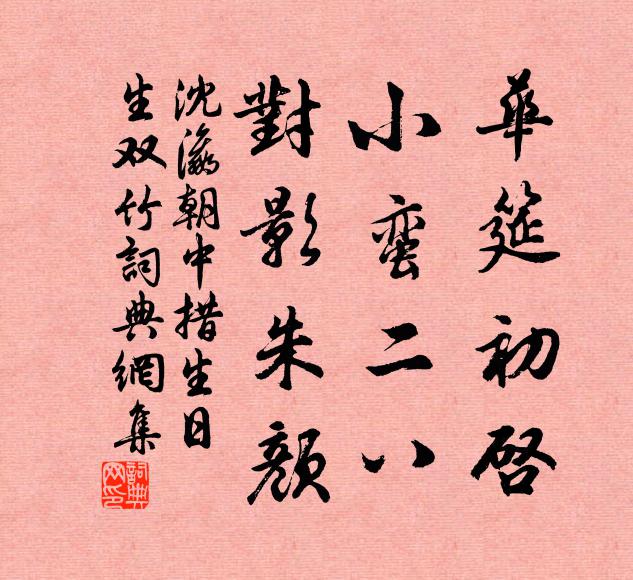 華筵初啓
小蛮二八
對影朱顏
沈瀛朝中措生日
生双竹詞典網集
詞典网印